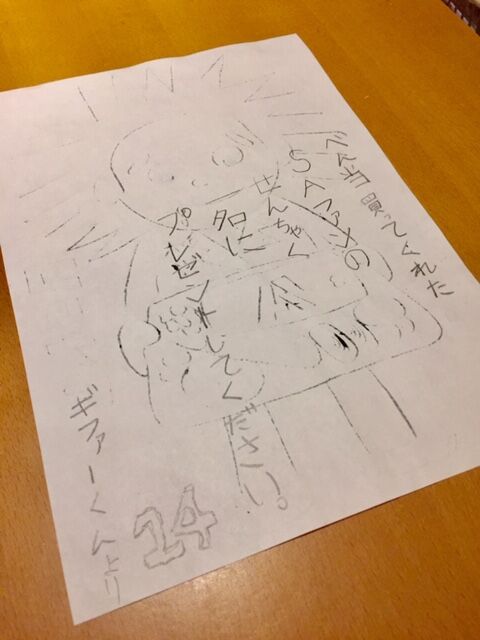 べん当買ってくれた
SAファメの
せんちゃく
名に
プレゼントしてください。
ギファーくんより
14